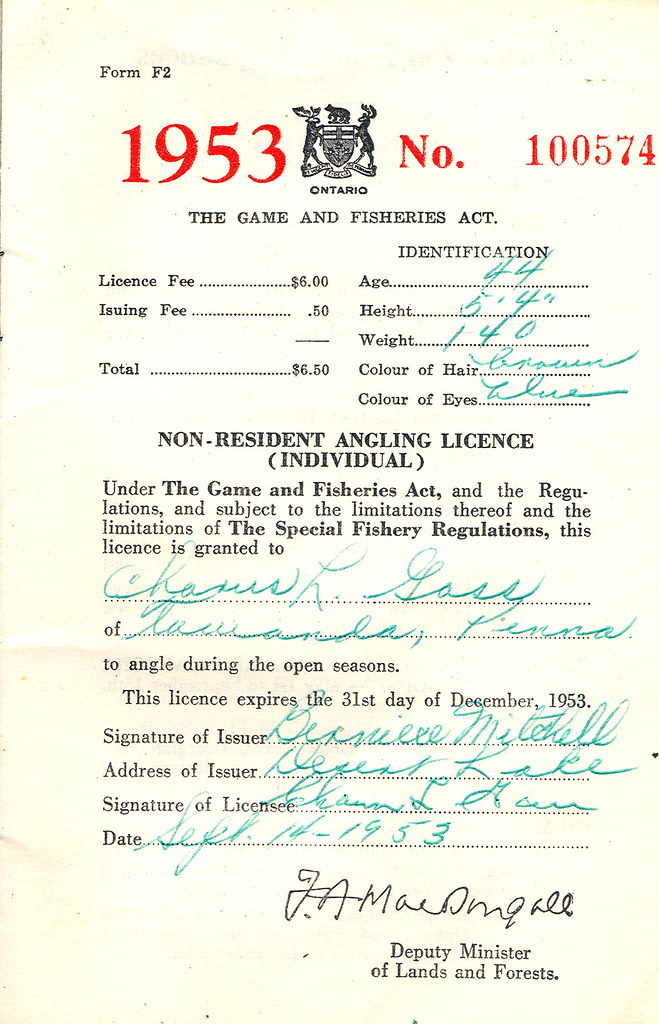 Form F2
1953 No. 100574
ONTARIO
THE GAME AND FISHERIES ACT.
IDENTIFICATION
Licence Fee ....................$6.00 Age 44
Isuing Fee ...................... .50 Height 5'4"
Weight 140
Total ..............................$6.50 Colour of Hair brown
Colour of Eyes blue
NON-RESIDENT ANGLING LICENCE
(INDIVIDUAL)
Under The Game and Fisheries Act, and the Regu-
lations, and subject to the limitations thereof and the
limitations of The Special Fishery Regulations, this
licence is granted to
L.
of Towanda, Penna.
to angle during the open seasons.
This licence expires the 31st day of December, 1953.
Signature of Issuer Berniece Mitchell
Address of Issuer Desert Lake
Signature of Licensee L
Date Sept. 14-1953
F. A. MacDougall
Deputy Minister
of Lands and Forests.